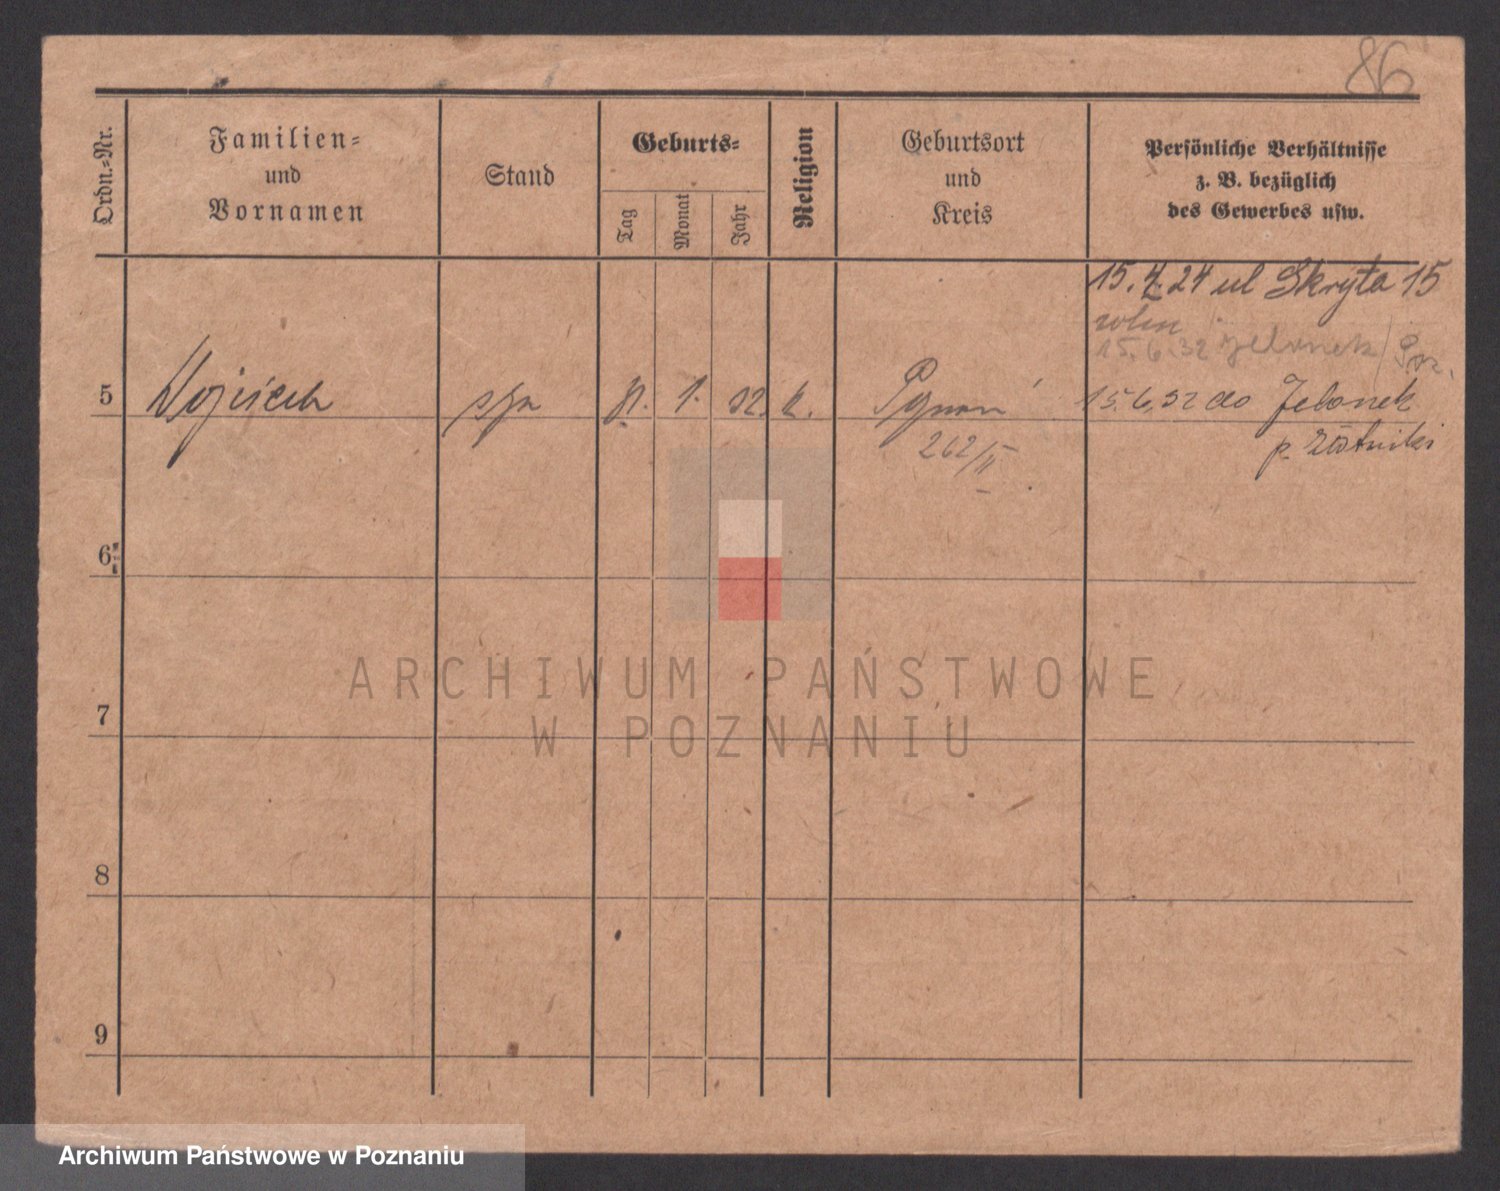 86
Ordn.=Nr.
Familien=
und
Vornamen
Stand
Geburts=
Tag
Monat
Jahr
Religion
Geburtsort
und
Kreis
Persönliche Verhältnisse
z. B. bezüglich
des Gewerbes usw.
15. 4. 24 ul Skryta 15
15. 6. 32 Jelonek / Poz.
5
Wojciech
syn
1.
32.
k.
Poznań
15.6.32 do Jelonek
262/II
p. Złotniki
6
7
8
9
ARCHIWUM PAŃSTWOWE
W POZNANIU
Archiwum Państwowe w Poznaniu